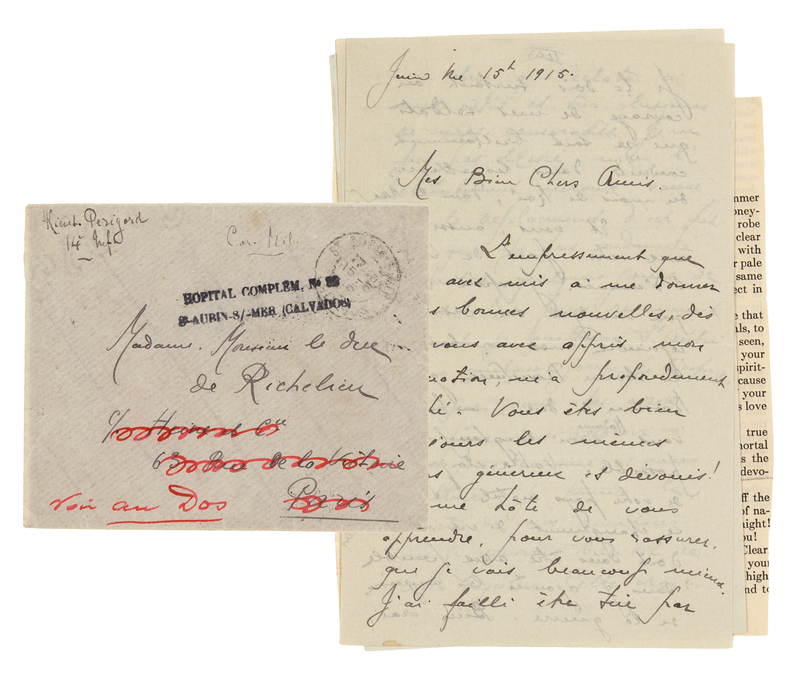 Lieut. Perigord
14e Inf.
Cor. Mil.
HOPITAL COMPLEM, No
St-AUBIN-S/-MER (CALVADOS)
Madame. Monsieur le duc
de Richelieu
c/ Cie
63 Rue de la Victoire
Paris
voir au Dos
15h 1915.
Mes Bien Chers Amis.
L'empressement que
avez mis à me donner
s bonnes nouvelles, dès
vous avez appris mon
motion, m'a profondement
hé. Vous êtes bien
jours les mêmes
s généreux et dévoués!
me hâte de vous
apprendre, pour vous rassurer,
que je vais beaucoup mieux.
J'ai failli être tué par
mmer
oney-
robe
clear
with
r pale
same
ect in
e that
als, to
seen,
your
spirit-
cause
your
s love
true
mortal
s the
devo-
ff the
of na-
night!
ou!
Clear,
your
high
nd to